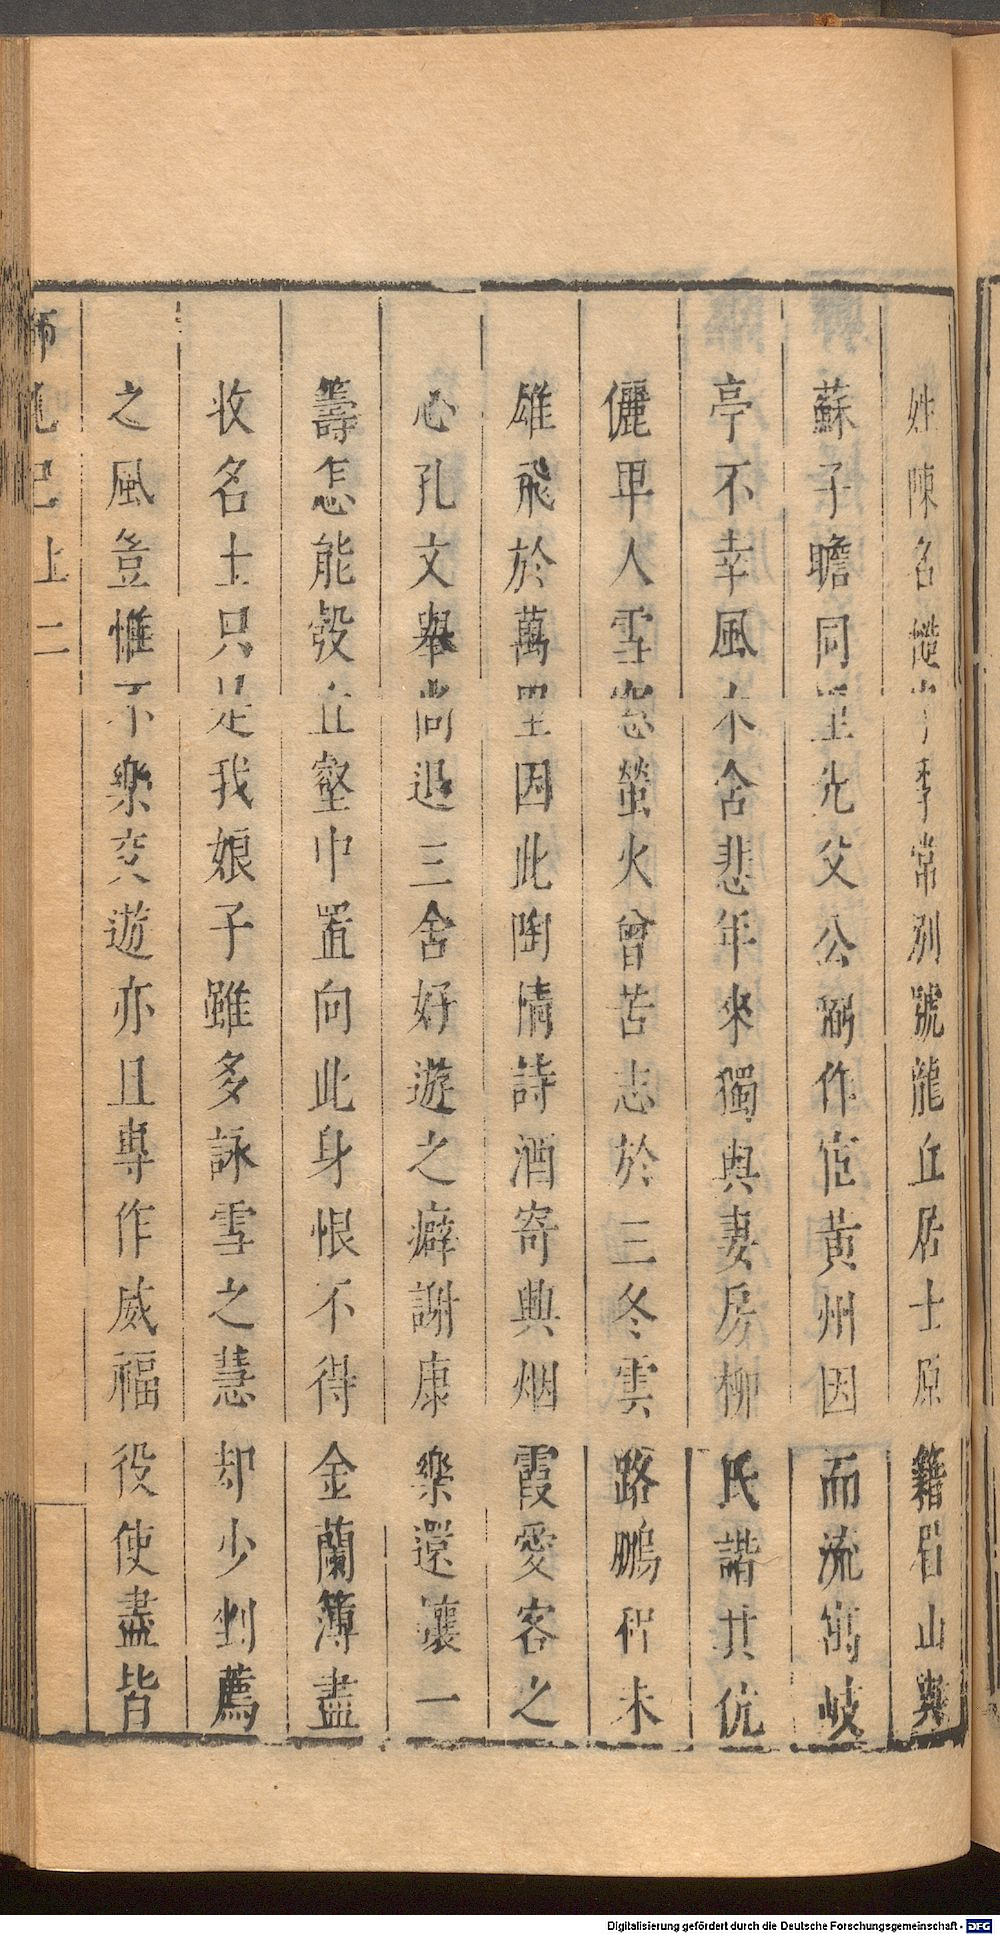 姓陳名慥字季常別號龍丘居士原籍眉山與
蘇子瞻同里先父公弼作宦黃州因而流寓岐
亭不幸風木含悲年來獨與妻房柳氏諧其伉
儷早人雪窓螢火曾苦志於三冬雲路鵬程未
雄飛於萬里因此陶情詩酒寄興烟霞愛客之
心孔文舉尚退三舍好遊之癖謝康樂還讓一
籌怎能彀丘壑中置向此身恨不得金蘭簿盡
收名士只是我娘子雖多詠雪之慧却少剉薦
之風豈惟不樂交遊亦且專作威福役使盡皆
師吼記上二
Digitalisierung gefördert durch die Deutsche Forschungsgemeinschaft - DFG